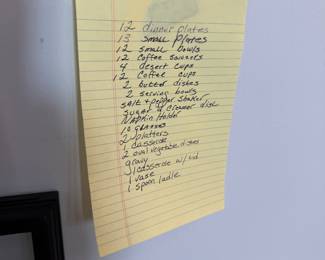 12 dinner plates
13 small plates
12 small bowls
12 coffee saucers
4 desert cups
12 coffee cups
2 butter dishes
2 serving bowls
salt & pepper shaker
sugar & creamer dish
Napkin Holder
10 glasses
2 platters
1 casserole
2 oval vegetable dishes
gravy
1 casserole w/ lid
1 vase
1 spoon ladle